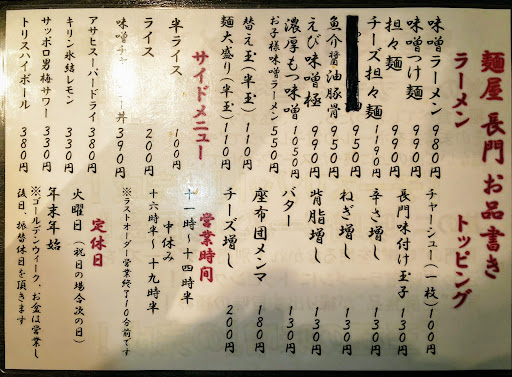 麺屋 長門 お品書き
ラーメン
味噌ラーメン 980円
味噌つけ麺 990円
担々麺 990円
チーズ担々麺 1190円
950円
魚介醤油豚骨 950円
えび味噌極 990円
濃厚もつ味噌 1050円
お子様味噌ラーメン 550円
替え玉(半玉) 110円
麺大盛り(半玉) 110円
サイドメニュー
半ライス 100円
ライス 200円
味噌チャ 丼 390円
アサヒスーパードライ 380円
キリン氷結レモン 330円
サッポロ男梅サワー 330円
トリスハイボール 380円
トッピング
チャーシュー(一枚) 100円
長門味付け玉子 130円
辛さ増し 130円
ねぎ増し 130円
背脂増し 130円
バター 130円
座布団メンマ 180円
チーズ増し 200円
営業時間
十一時~十四時半
中休み
十六時半~十九時半
※ラストオーダー営業終了10分前です
定休日
火曜日(祝日の場合次の日)
年末年始
※ゴールデンウィーク、お盆は営業し
後日、振替休日を頂きます